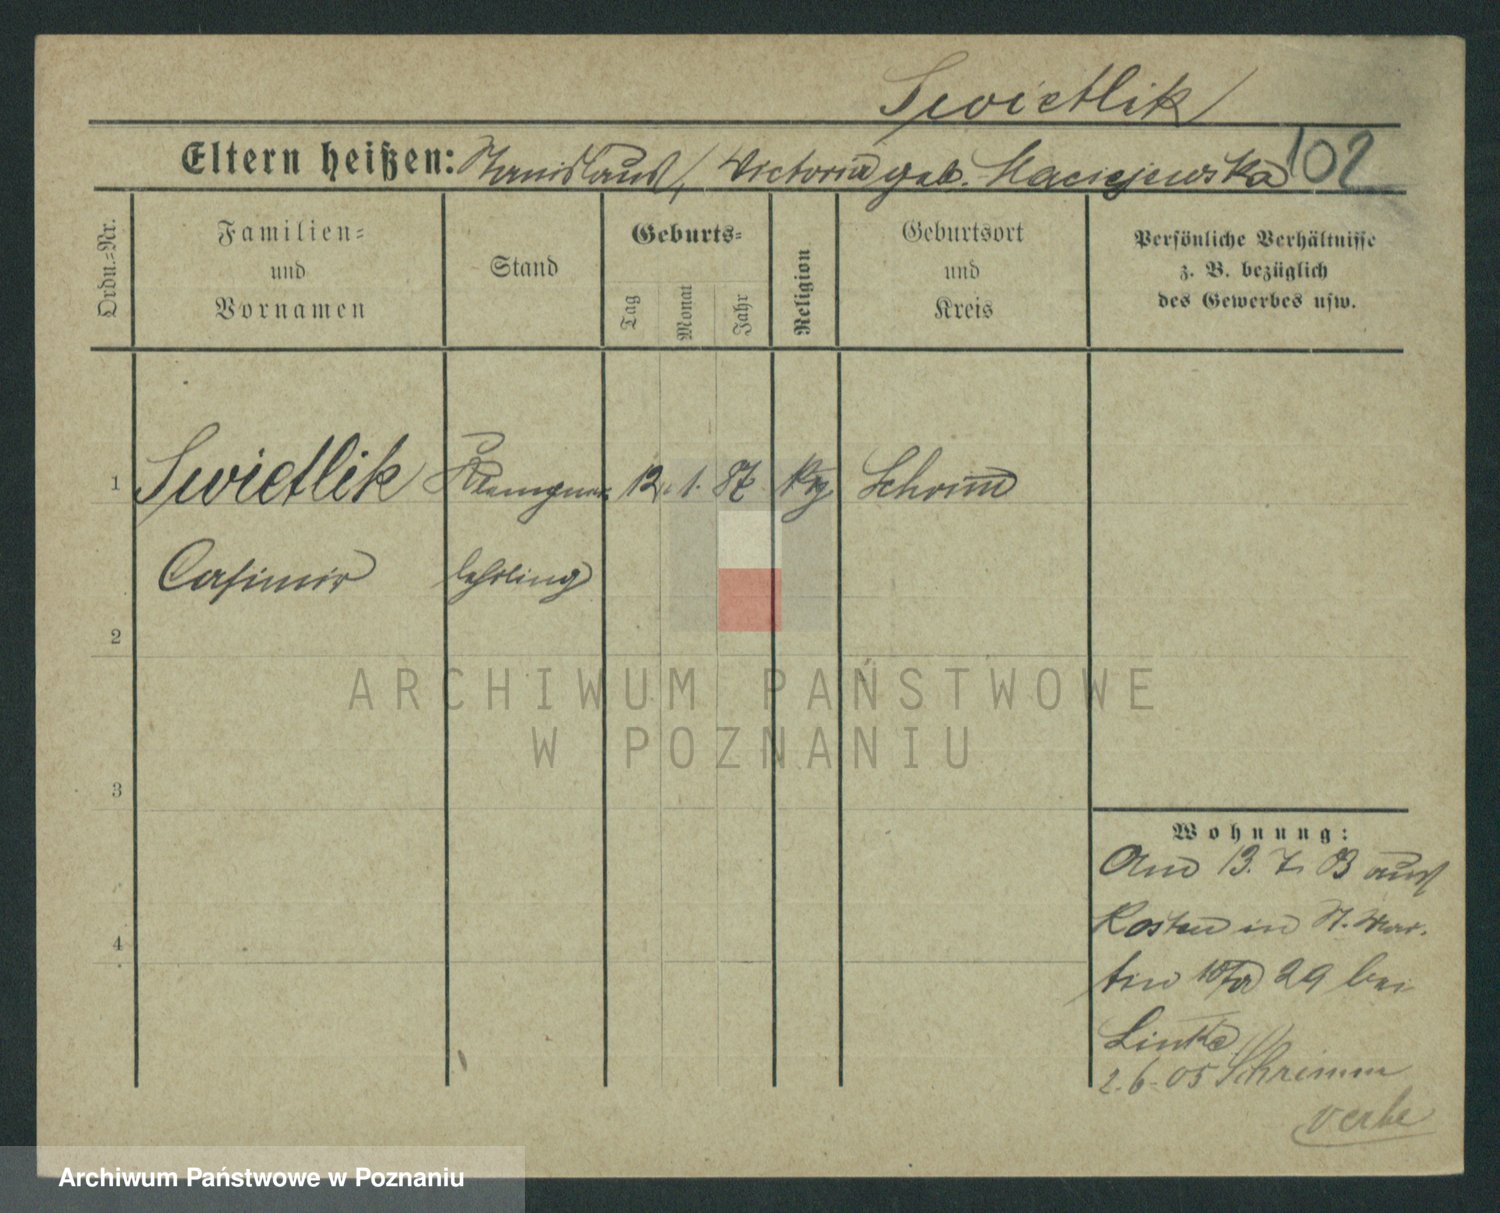 Swietlik
102
Eltern heißen: Stanislaus / Victoria geb. Maciejewska
Ordn.-Nr.
Familien-
und
Vornamen
Stand
Geburts-
Tag
Monat
Jahr
Religion
Geburtsort
und
Kreis
Persönliche Verhältnisse
z. B. bezüglich
des Gewerbes usw.
1 Swietlik Klempner 12. 1. 87. Schrimm
Casimir lehrling
2
3
4
Wohnung:
Am 13. 7. 03 aus
Kosten in St. Mar-
tin 29 bei
Linke
2.6.05 Schrimm
ARCHIWUM PAŃSTWOWE
W POZNANIU
Archiwum Państwowe w Poznaniu